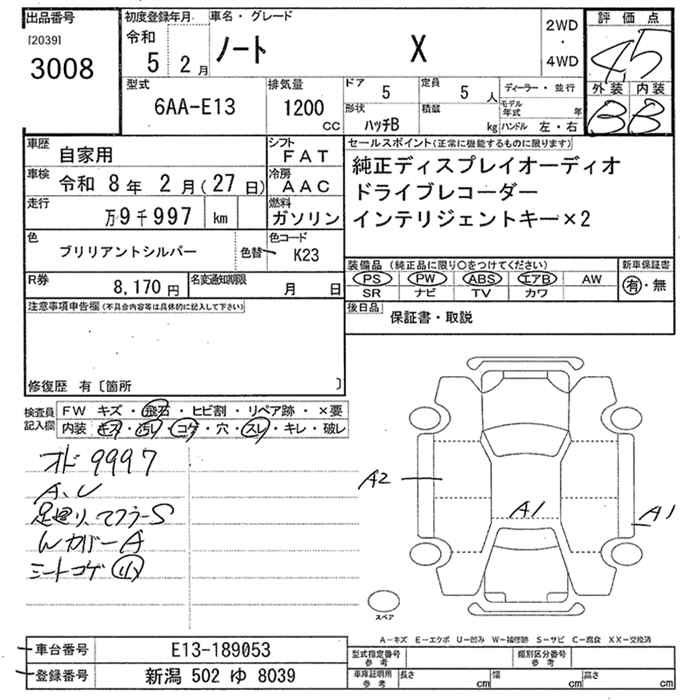 出品番号
[2039]
3008
初度登録年月
令和
5 2月
車名・グレード
ノート X
2WD
・
4WD
評価点
4.5
外装 内装
B B
型式
6AA-E13
排気量
1200
CC
ドア
5
定員
5 人
形状
ハッチB
積載
kg
ディーラー・並行
モデル年式 年
ハンドル 左・右
車歴
自家用
シフト
FAT
車検
令和 8年 2月(27日)
冷房
AAC
走行
万9千997 km
燃料
ガソリン
色
ブリリアントシルバー
色替
色コード
K23
R券
8,170円
名変通知期限
月 日
セールスポイント(正常に機能するものに限ります)
純正ディスプレイオーディオ
ドライブレコーダー
インテリジェントキー×2
装備品(純正品に限り○をつけてください)
新車保証書
PS PW ABS エアB AW
有・無
SR ナビ TV カワ
後日品
保証書・取説
注意事項申告欄(不具合内容等は具体的に記入して下さい)
修復歴 有〔箇所 〕
検査員記入欄
FW キズ・飛石・ヒビ割・リペア跡・×要
内装 キズ・汚レ・コゲ・穴・スレ・キレ・破レ
オド9997
A、U
足廻り、マフラーS
Wカバー A
シートコゲ 小
A2
A1
A1
スペア
A-キズ E-エクボ U-凹み W-補修跡 S-サビ C-腐食 XX-交換済
車台番号
E13-189053
登録番号
新潟 502 ゆ 8039
型式指定番号
参考
類別区分番号
参考
車庫証明用
参考
長さ cm
幅 cm
高さ cm